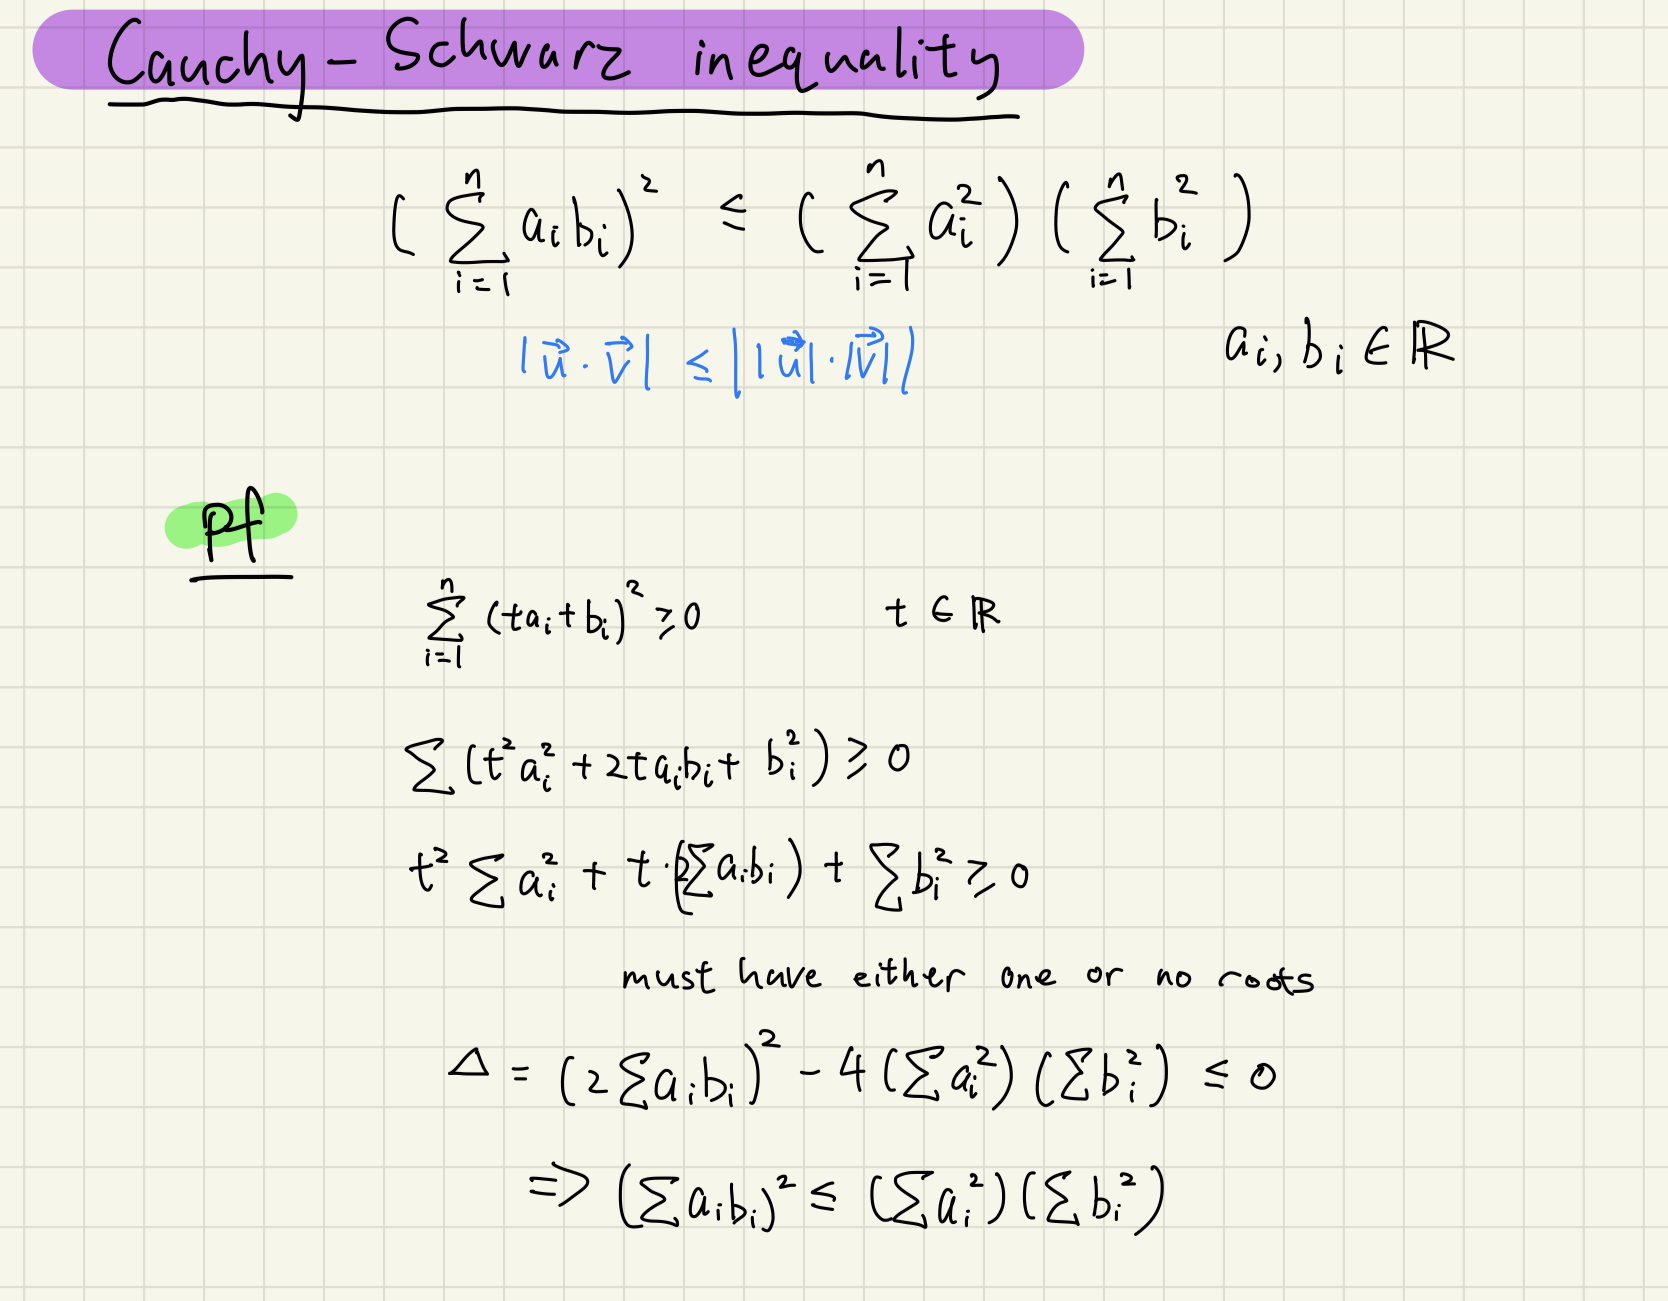 Cauchy-Schwarz inequality
( \sum_{i=1}^{n} a_i b_i )^2 ≤ ( \sum_{i=1}^{n} a_i^2 ) ( \sum_{i=1}^{n} b_i^2 )
|\vec{u} · \vec{v}| ≤ ||\vec{u}| · |\vec{v}||
a_i, b_i ∈ ℝ
pf
\sum_{i=1}^{n} (ta_i + b_i)^2 ≥ 0 t ∈ ℝ
∑ (t^2 a_i^2 + 2t a_i b_i + b_i^2) ≥ 0
t^2 ∑ a_i^2 + t · (2∑ a_i b_i) + ∑ b_i^2 ≥ 0
must have either one or no roots
Δ = (2 ∑ a_i b_i)^2 - 4 (∑ a_i^2) (∑ b_i^2) ≤ 0
=> (∑ a_i b_i)^2 ≤ (∑ a_i^2) (∑ b_i^2)